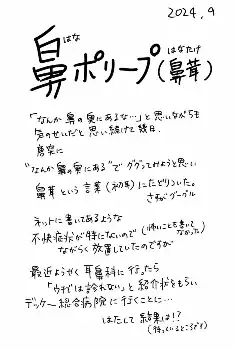 2024.9
はな
鼻ポリープ(鼻茸)
はなたけ
「なんか鼻の奥にあるな…」と思いながらも
気のせいだと思い続けて幾日。
唐突に
"なんか鼻の奥にある"でググってみようと思い
鼻茸という言葉(初耳)にたどりついた。
さすがグーグル
ネットに書いてあるような
不快症状が特にないので(怖いことも書いてなかった)
ながらく放置していたのですが
最近ようやく耳鼻科に行ったら
「ウチでは診れない」と紹介状をもらい
デッケー総合病院に行くことに…
はたして結果は!?
(待っているところです)